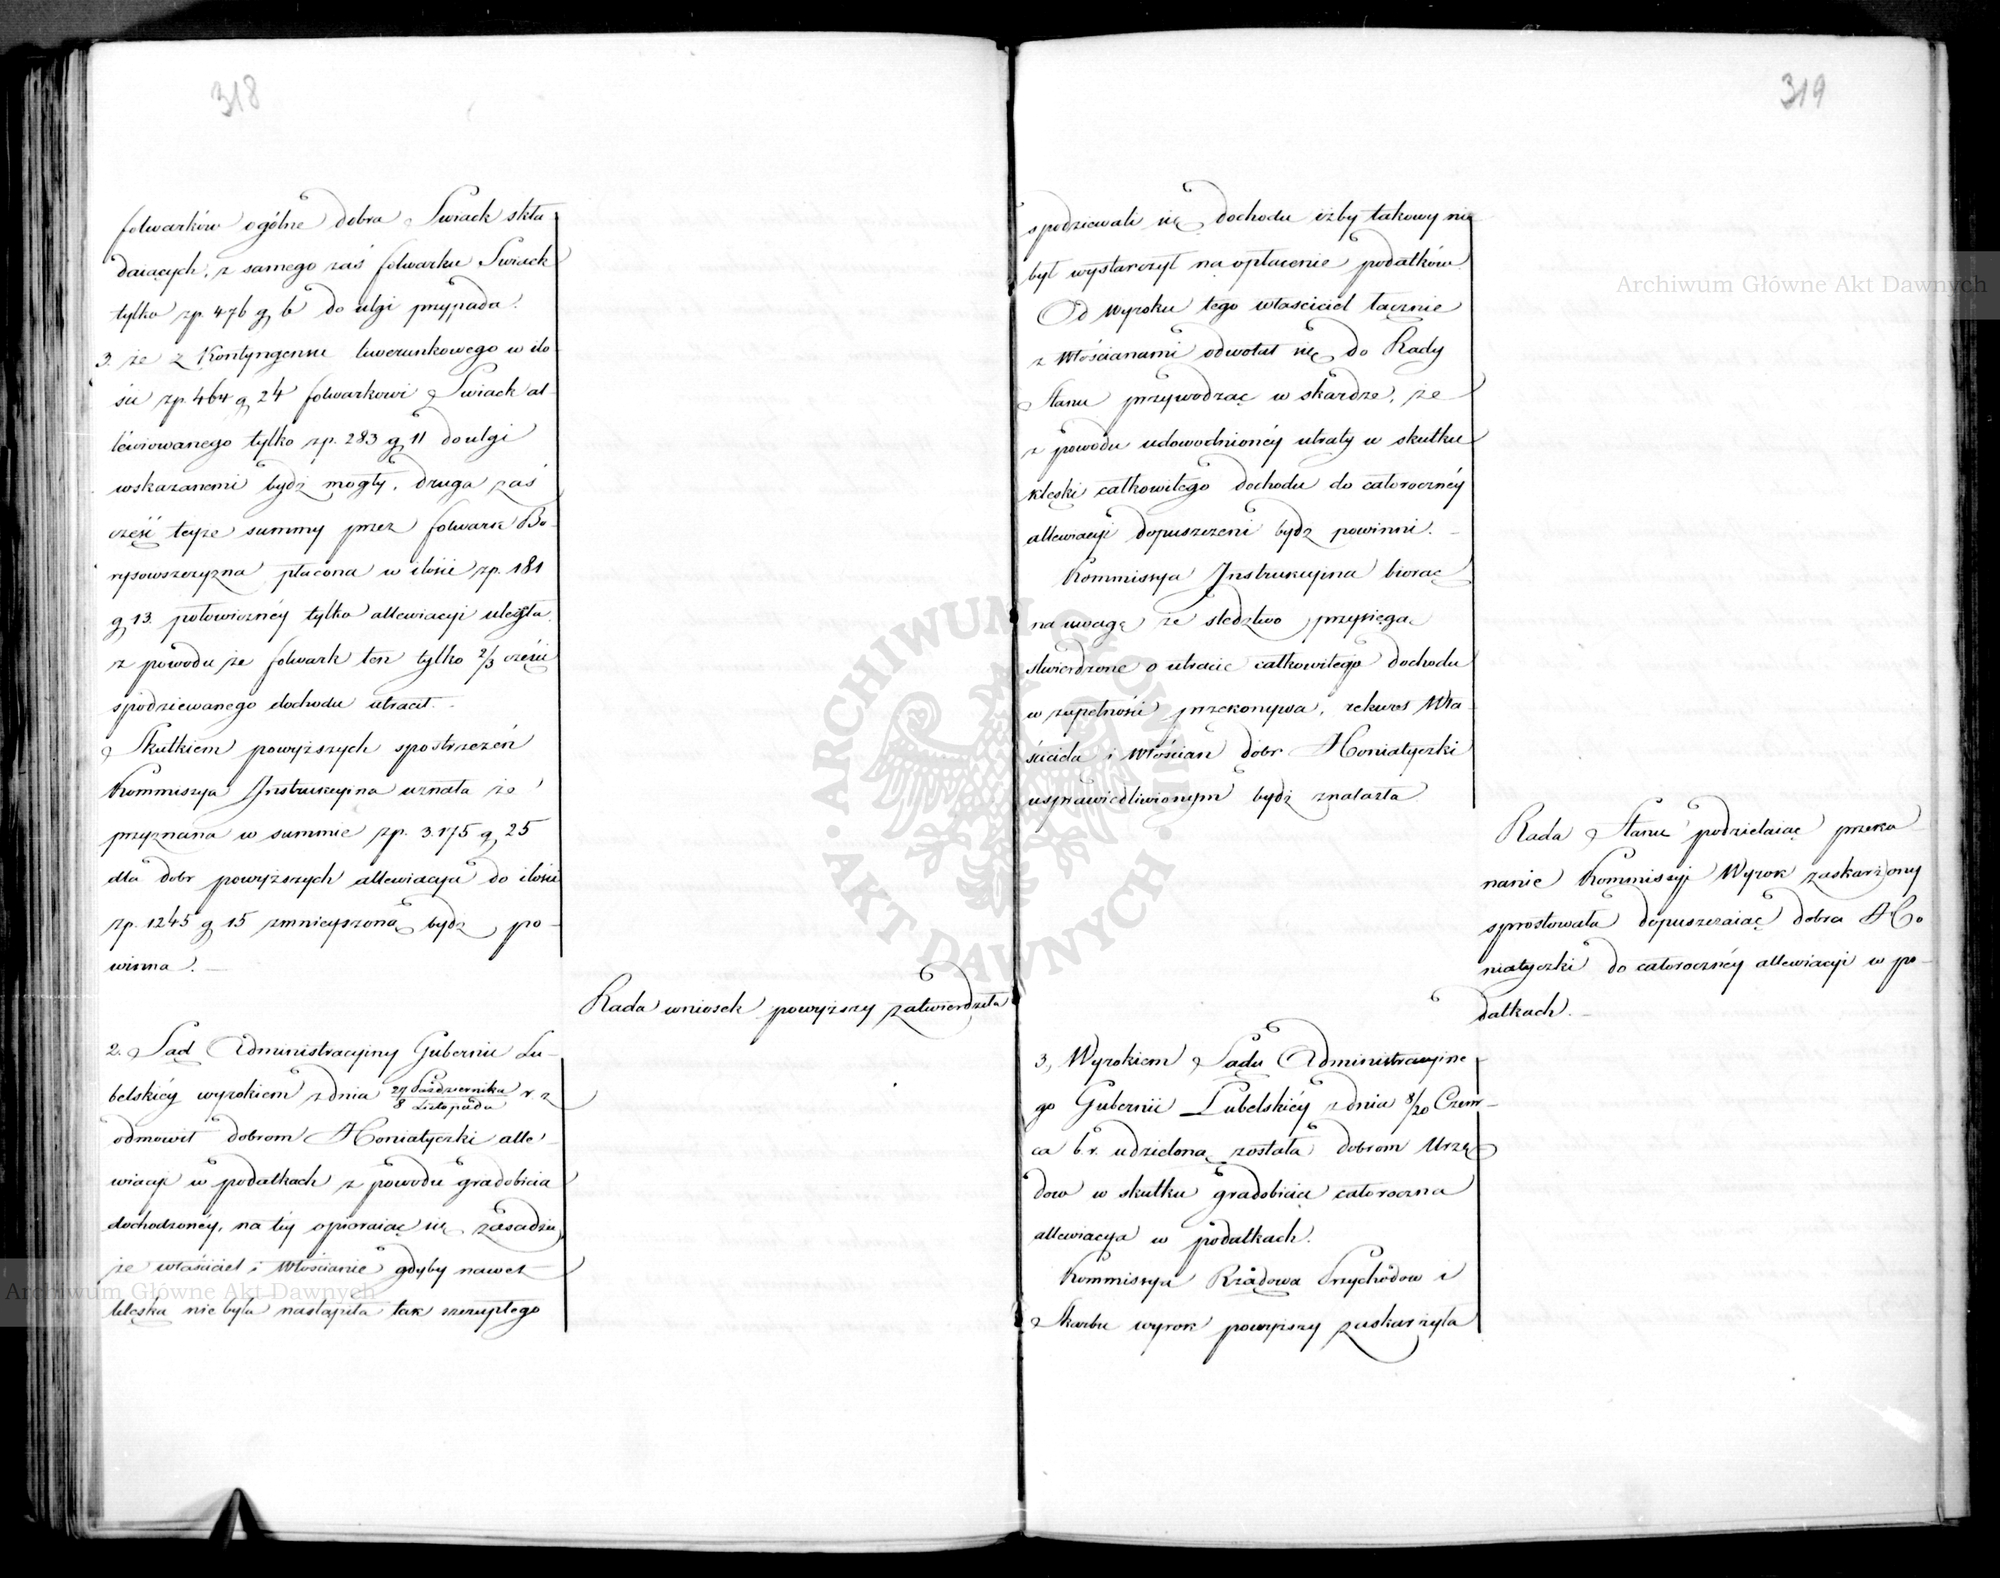 318
folwarków ogólne dobra Swiack skła
daiących, z samego zaś folwarku Swiack
tylko zp. 476 g 6 do ulgi przypada.
3. że z Kontyngensu liwerunkowego w ilo-
ści zp. 464 g 24 folwarkowi Swiack al-
lewiowanego tylko zp. 283 g 11 do ulgi
wskazanemi bydź mogły, druga zaś
część teyże summy przez folwark Bo-
rysowszczyzna płacona w ilości zp. 181
g 13. połowicznéy tylko allewiacyi uległa
z powodu że folwark ten tylko 2/3 części
spodziewanego dochodu utracił.
Skutkiem powyższych spostrzeżeń
Kommissya Instrukcyina uznała że
przyznana w summie zp. 3.175 g 25
dla dobr powyższych allewiacya do ilości
zp. 1245 g 15 zmnieyszoną bydź po-
winna.
Rada wniosek powyższy zatwierdziła
2. Sąd Administracyiny Gubernii Lu-
belskiéy wyrokiem z dnia 27 Października / 8 Listopada r. z
odmowił dobrom Honiatyczki alle-
wiacyi w podatkach z powodu gradobicia
dochodzonéy, na téy opieraiąc się zasadzie
że właściciel i Włościanie gdyby nawet
klęska nie była nastąpiła tak szczupłego
319
spodziewali się dochodu iżby takowy nie
był wystarczył na opłacenie podatków.
Od Wyroku tego właściciel łącznie
z Włościanami odwołał się do Rady
Stanu przywodząc w skardze, że
z powodu udowodnionéy utraty w skutku
klęski całkowitego dochodu do całorocznéy
allewiacyi dopuszczeni bydź powinni.
Kommissya Instrukcyina biorąc
na uwagę że śledztwo przysięgą
stwierdzone o utracie całkowitego dochodu
w zupełności przekonywa, rekurs Wła-
ściciela i Włościan dóbr Honiatyczki
usprawiedliwionym bydź znalazła
Rada Stanu podzielaiąc przeko
nanie Kommissyi Wyrok zaskarżony
sprostowała dopuszczaiąc dobra Ho
niatyczki do całorocznéy allewiacyi w po-
datkach.
3, Wyrokiem Sądu Administracyine
go Gubernii Lubelskiéy z dnia 8/20 Czerw-
ca b. r. udzieloną została dobrom Urzę
dow w skutku gradobicia całoroczna
allewiacya w podatkach.
Kommissya Rządowa Przychodow i
Skarbu wyrok powyższy zaskarżyła
Archiwum Główne Akt Dawnych
Archiwum Główne Akt Dawnych
ARCHIWUM GŁÓWNE · AKT DAWNYCH ·